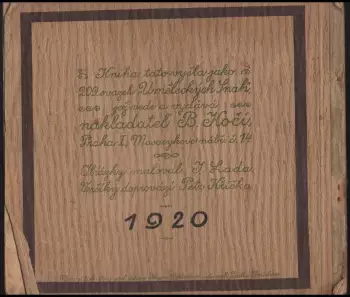 Kniha tato vyšla jako
209. svazek Uměleckých Snah
jež vede a vydává
nakladatel B. Kočí
Praha I, Masarykovo nábř. č. 14
Obrázky maloval J. Lada
Veršíky doprovází Petr Křička
1920